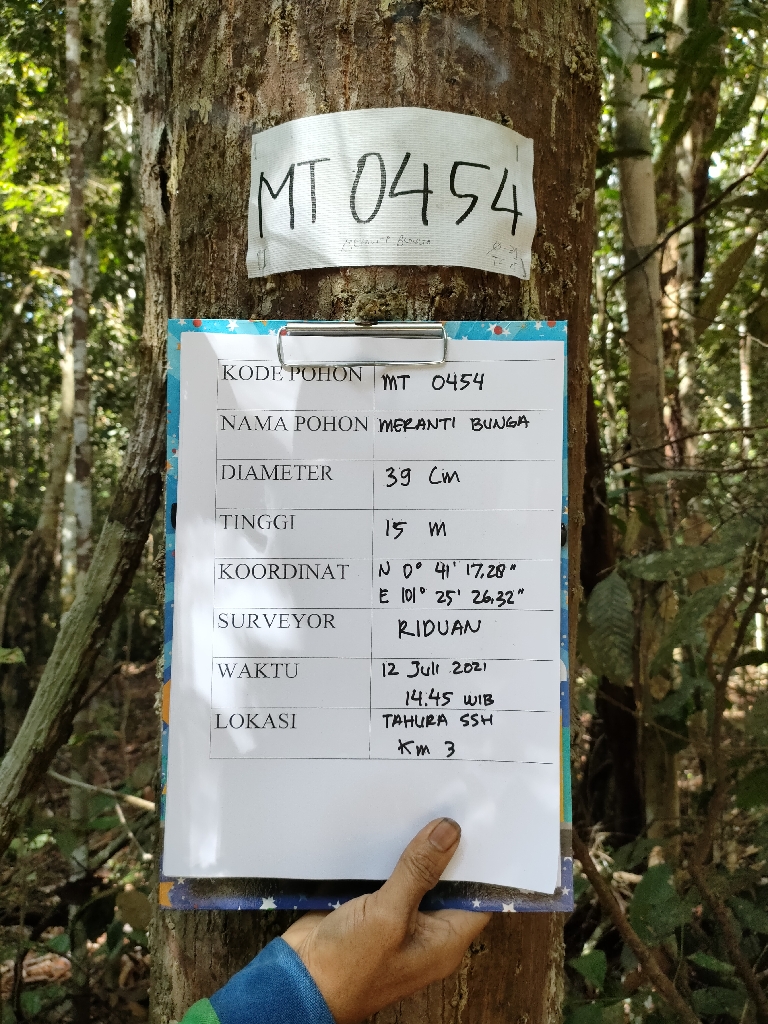 MT 0454
MERANTI BUNGA
KODE POHON MT 0454
NAMA POHON MERANTI BUNGA
DIAMETER 39 Cm
TINGGI 15 M
KOORDINAT N 0° 41' 17.28"
E 101° 25' 26.32"
SURVEYOR RIDUAN
WAKTU 12 Juli 2021
14.45 WIB
LOKASI TAHURA SSH
Km 3